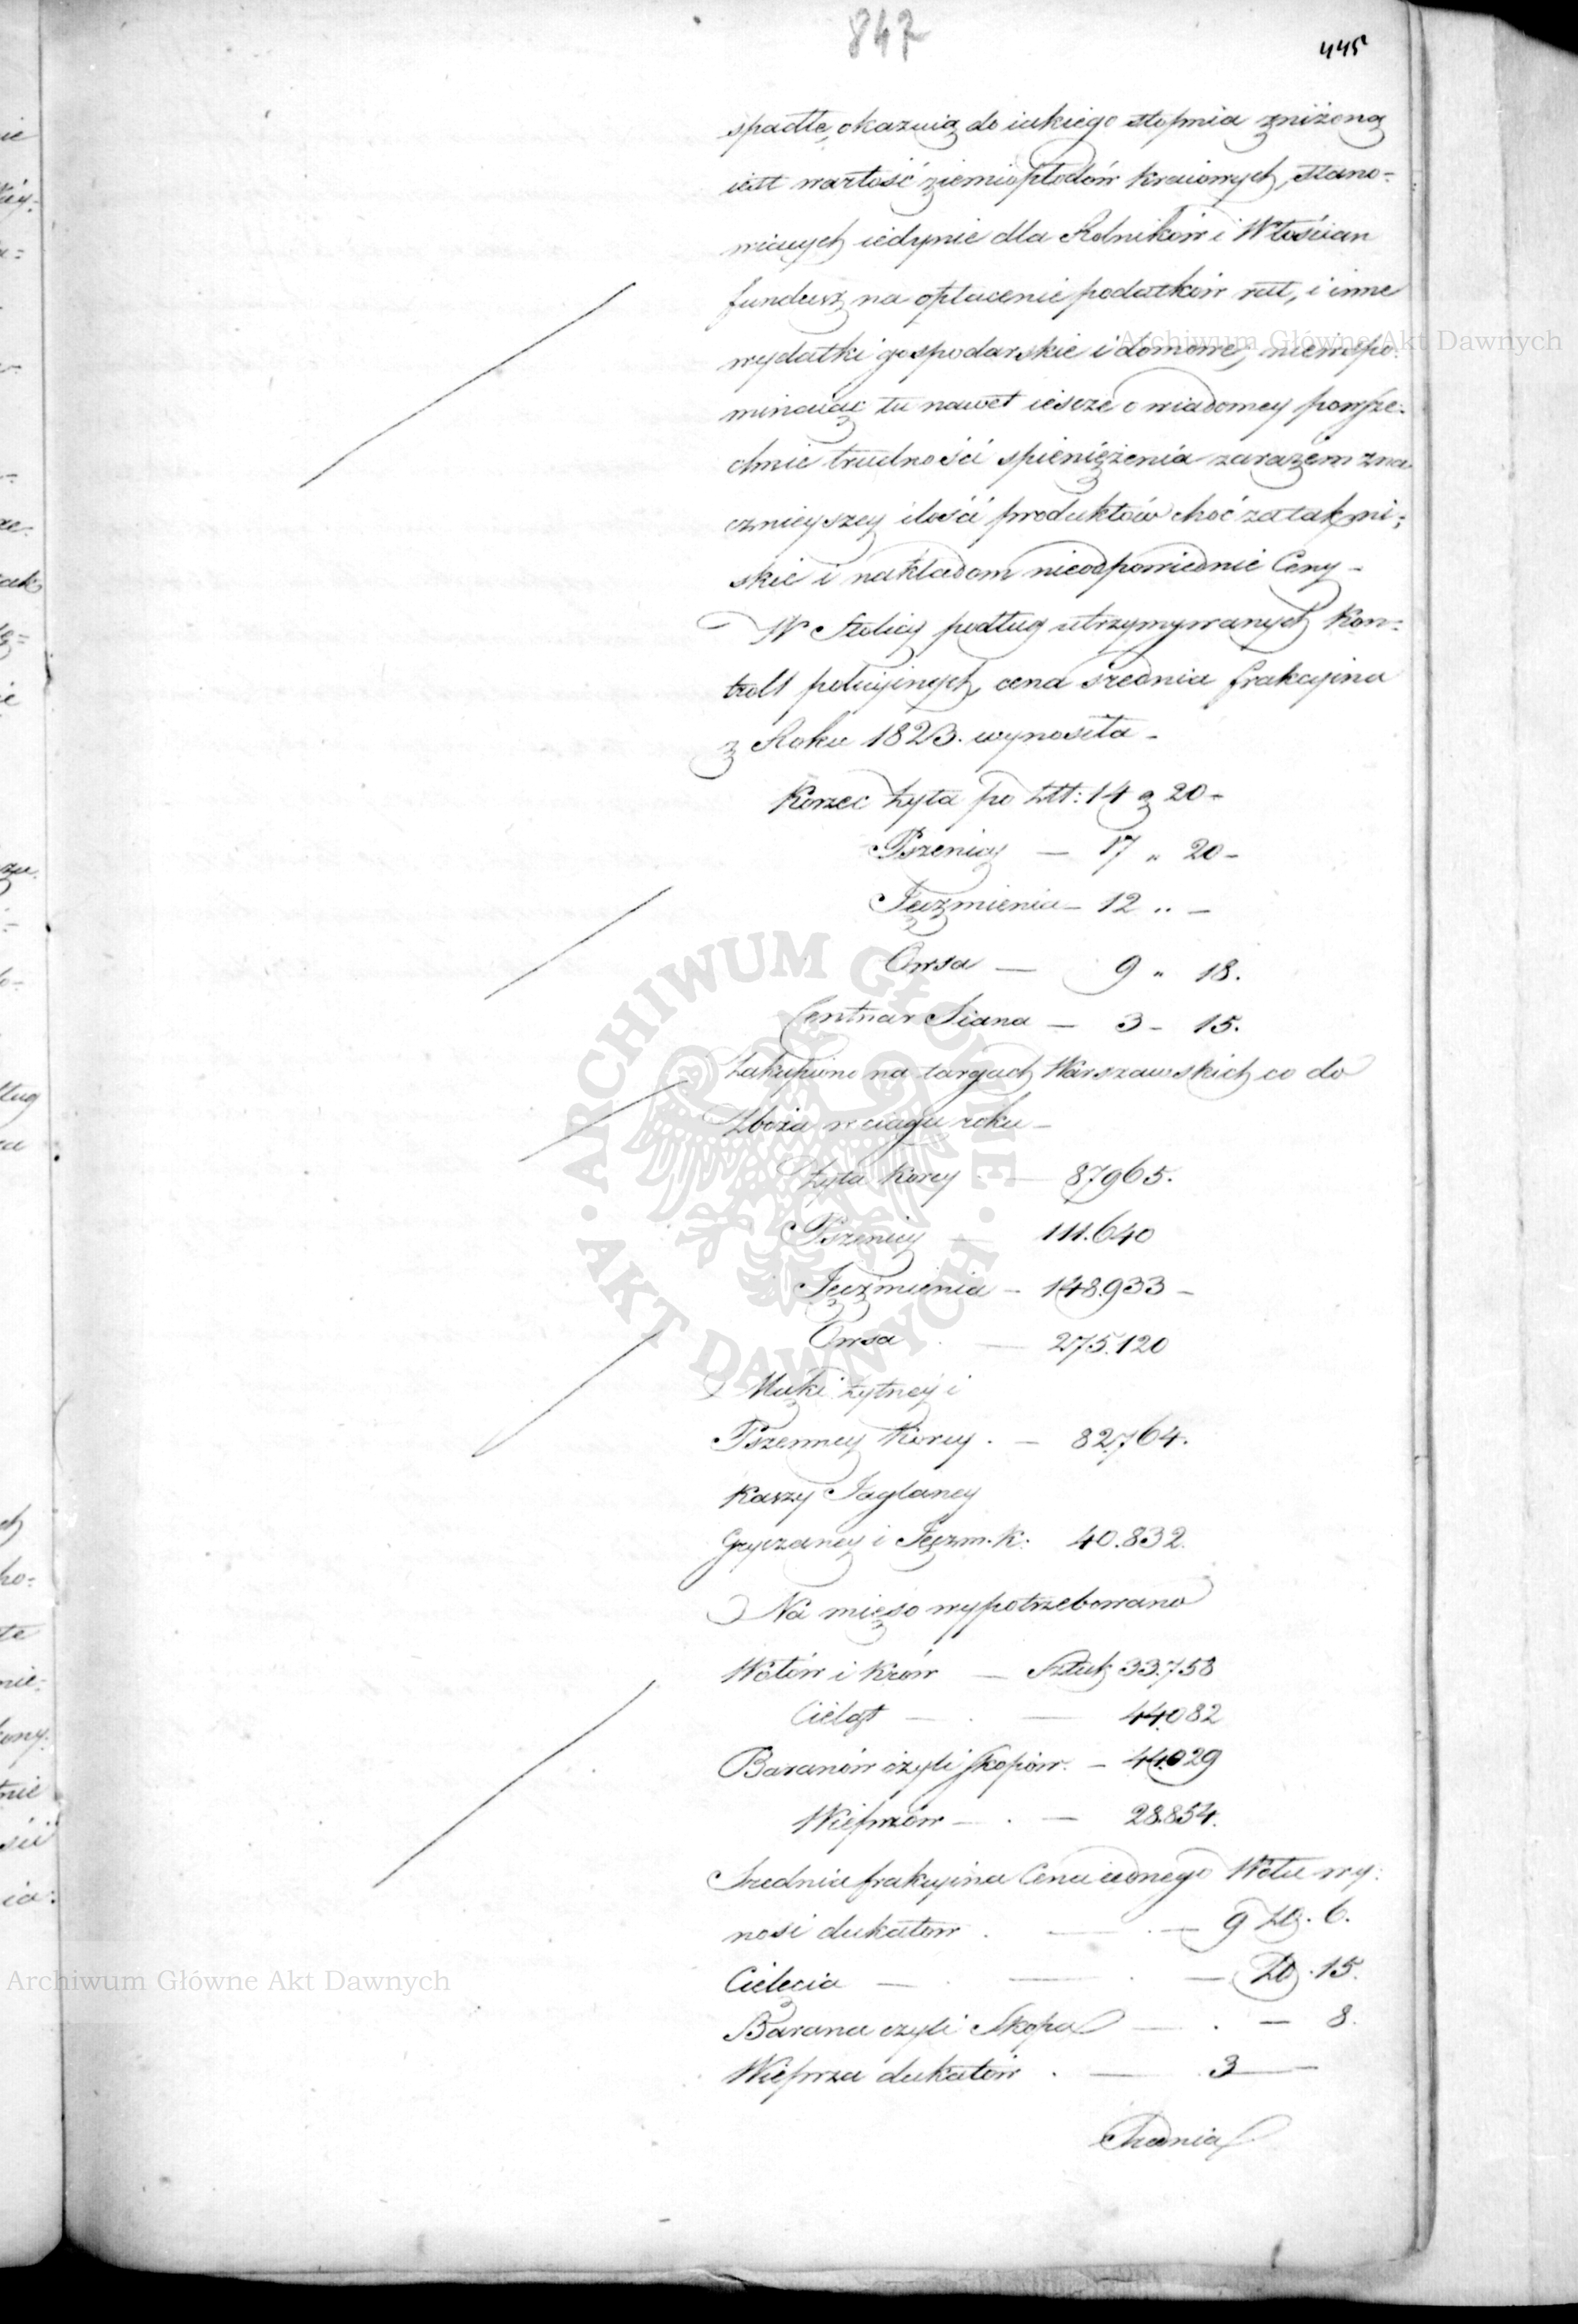 847
445
spadłe, okazuią do iakiego stopnia zniżoną
iest wartość ziemiopłodów kraiowych, stano-
wiących iedynie dla Rolników i Włościan
fundusz na opłacenie podatków rat, i inne
wydatki gospodarskie i domowe, niewspo-
minaiąc tu nawet ieszcze o wiadomey powsze-
chnie trudności spieniężenia zarazem zna
cznieyszey ilości produktów choć za tak ni-
skie i nakładom nieodpowiednie Ceny -
W Stolicy podług utrzymywanych Kon-
troll policyinych, cena średnia frakcyina
z Roku 1823. wynosiła -
Korzec żyta po Złł: 14 g 20 -
Pszenicy — 17 " 20 -
Jęczmienia - 12 " -
Owsa — 9 " 18.
Centnar Siana — 3 - 15.
Zakupiono na targach Warszawskich co do
Zboża w ciągu roku -
Żyta Korcy — 87965.
Pszenicy — 111.640
Jęczmienia - 148.933 -
Owsa . — 275.120
Mąki żytney i
Pszenney Korcy . — 82.764.
Kaszy Jaglaney
Gryczaney i Jęczm. K. 40.832.
Na mięso wypotrzebowano
Wołów i Krów — Sztuk 33.758
Cieląt — . — 44.082
Baranów czyli Skopów. — 44.029
Wieprzów — . — 28.854.
Średnia frakcyina Cena iednego Wołu wy-
nosi dukatów . — . — 9 Zł. 6.
Cielęcia — . — . — Zł. 15.
Barana czyli Skopa — . — 8.
Wieprza dukatów . — 3 —
Średnia
Archiwum Główne Akt Dawnych
ARCHIWUM GŁÓWNE AKT DAWNYCH
Archiwum Główne Akt Dawnych